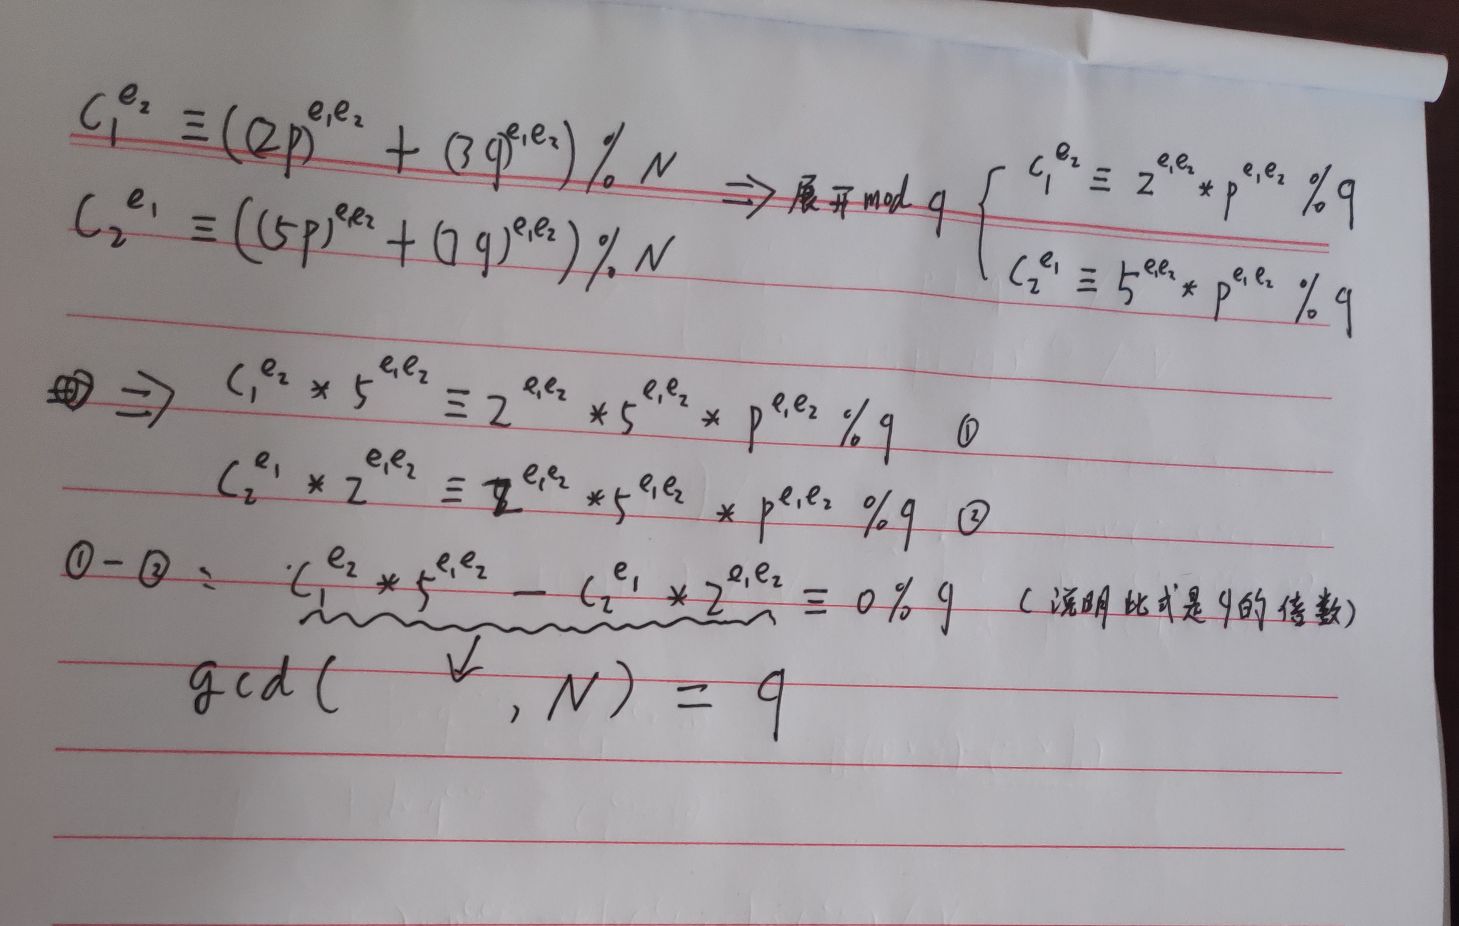 C₁^{e₂} ≡ ((2p)^{e₁e₂} + (3q)^{e₁e₂}) % N
C₂^{e₁} ≡ ((5p)^{e₁e₂} + (7q)^{e₁e₂}) % N
⇒ 展开 mod q { C₁^{e₂} ≡ 2^{e₁e₂} * p^{e₁e₂} % q
C₂^{e₁} ≡ 5^{e₁e₂} * p^{e₁e₂} % q
⇒ C₁^{e₂} * 5^{e₁e₂} ≡ 2^{e₁e₂} * 5^{e₁e₂} * p^{e₁e₂} % q ①
C₂^{e₁} * 2^{e₁e₂} ≡ 2^{e₁e₂} * 5^{e₁e₂} * p^{e₁e₂} % q ②
① - ② : C₁^{e₂} * 5^{e₁e₂} - C₂^{e₁} * 2^{e₁e₂} ≡ 0 % q (说明此式是q的倍数)
gcd( ↓ , N) = q